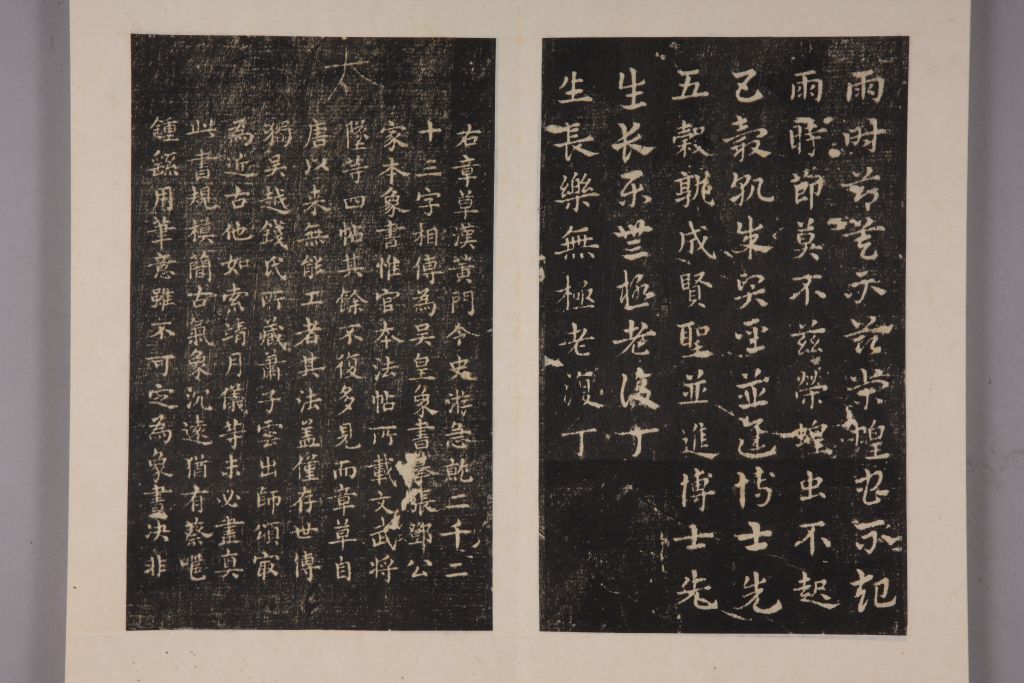 雨時節莫不兹榮蝗虫不起
雨時節莫不兹榮蝗虫不起
五穀孰成賢聖並進博士先
五穀孰成賢聖並進博士先
生長樂無極老復丁
生長樂無極老復丁
太
右章草漢黄門令史游急就二千二
十三字相傳為吴皇象書摹張鄧公
家本象書惟官本法帖所載文武將
墜等四帖其餘不復多見而章草自
唐以来無能工者其法盖僅存世傳
獨吴越錢氏所藏蕭子雲出師頌㝡
為近古他如索靖月儀等未必盡真
此書規模簡古氣象沉遠猶有蔡邕
鍾繇用筆意雖不可定為象書决非